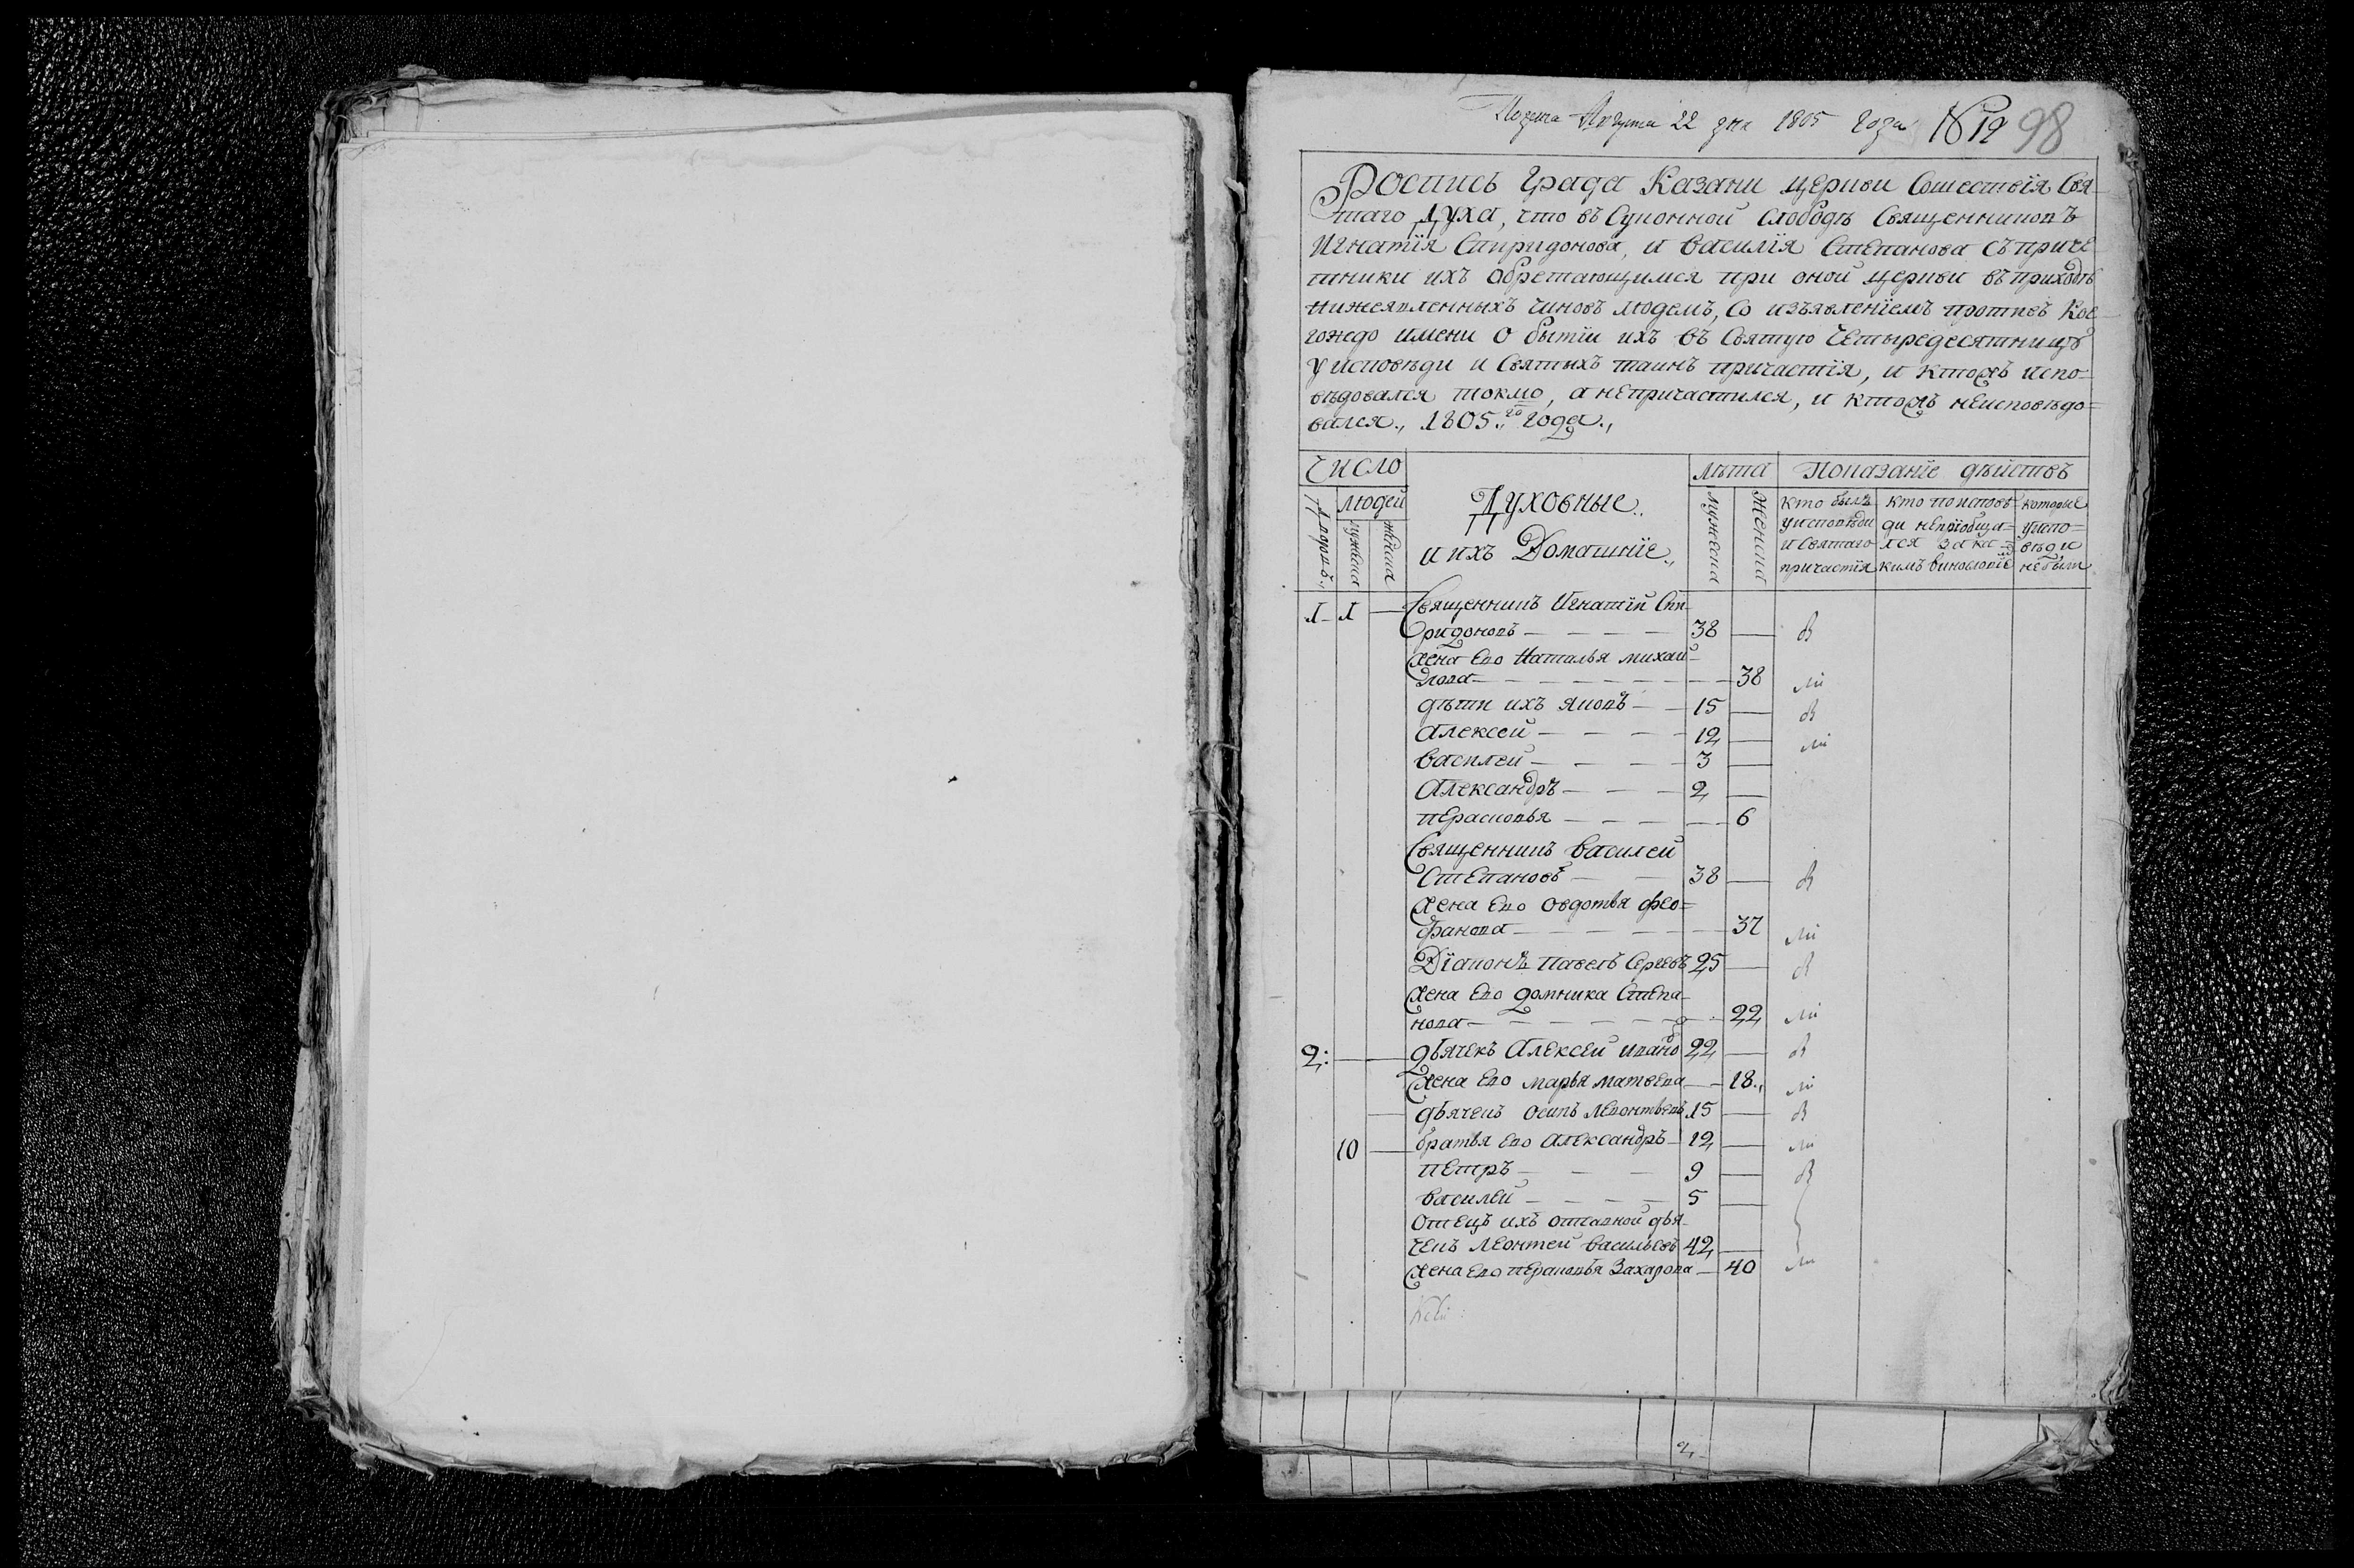 Подана Августа 22 дня 1805 года № 12 98
Роспись Града Казани церкви Сошествїя Свя-
таго Духа, что въ Суконной слободѣ Священниковъ
Игнатїя Спиридонова, и Василїя Степанова съ приче
тники ихъ обретающимся при оной церкви въ приходѣ
нижеявленныхъ чиновъ людемъ, со изъявленїемъ противъ Кое-
гождо имени о бытїи ихъ въ Святую Четыредесятницу
у исповѣди и Святыхъ таинъ причастїя, и ктожъ испо=
вѣдовался токмо, а непричастился, и ктожъ неисповѣдо=
вался., 1805го года.,
Число
людей
Дворовъ.,
мужеска
женска
Духовные..
и ихъ Домашнїе.,
лѣта
мужеска
женска
Показанїе дѣйствъ
кто былъ
у исповѣди
и Святаго
причастїя
кто по исповѣ-
ди непрїобща=
лся за ка=
кимъ винословїе
которые
у испо=
вѣди
не были
1 1 Священникъ Игнатїй Спи-
ридоновъ 38 в
жена его Наталья михай-
лова 38 ли
дѣти ихъ Яковъ 15 в
Алексей 12 ли
Василей 3
Александръ 2
Парасковья 6
Священникъ Василей
Степановъ 38 в
жена его Овдотья Фео=
фанова 37 ли
Дїаконъ Павелъ Сергевъ 25 в
жена его домника Степа-
нова 22 ли
2: дьячекъ Алексей иванов 22 в
жена его марья матвева 18., ли
дьячекъ Осипъ Левонтьевъ 15 в
10 братья его Александръ 12 ли
Петръ 9 в
Василей 5
Отецъ ихъ отставной дья-
чекъ Леонтей Васильевъ 42
жена его Парасковья Захарова 40 ли
2